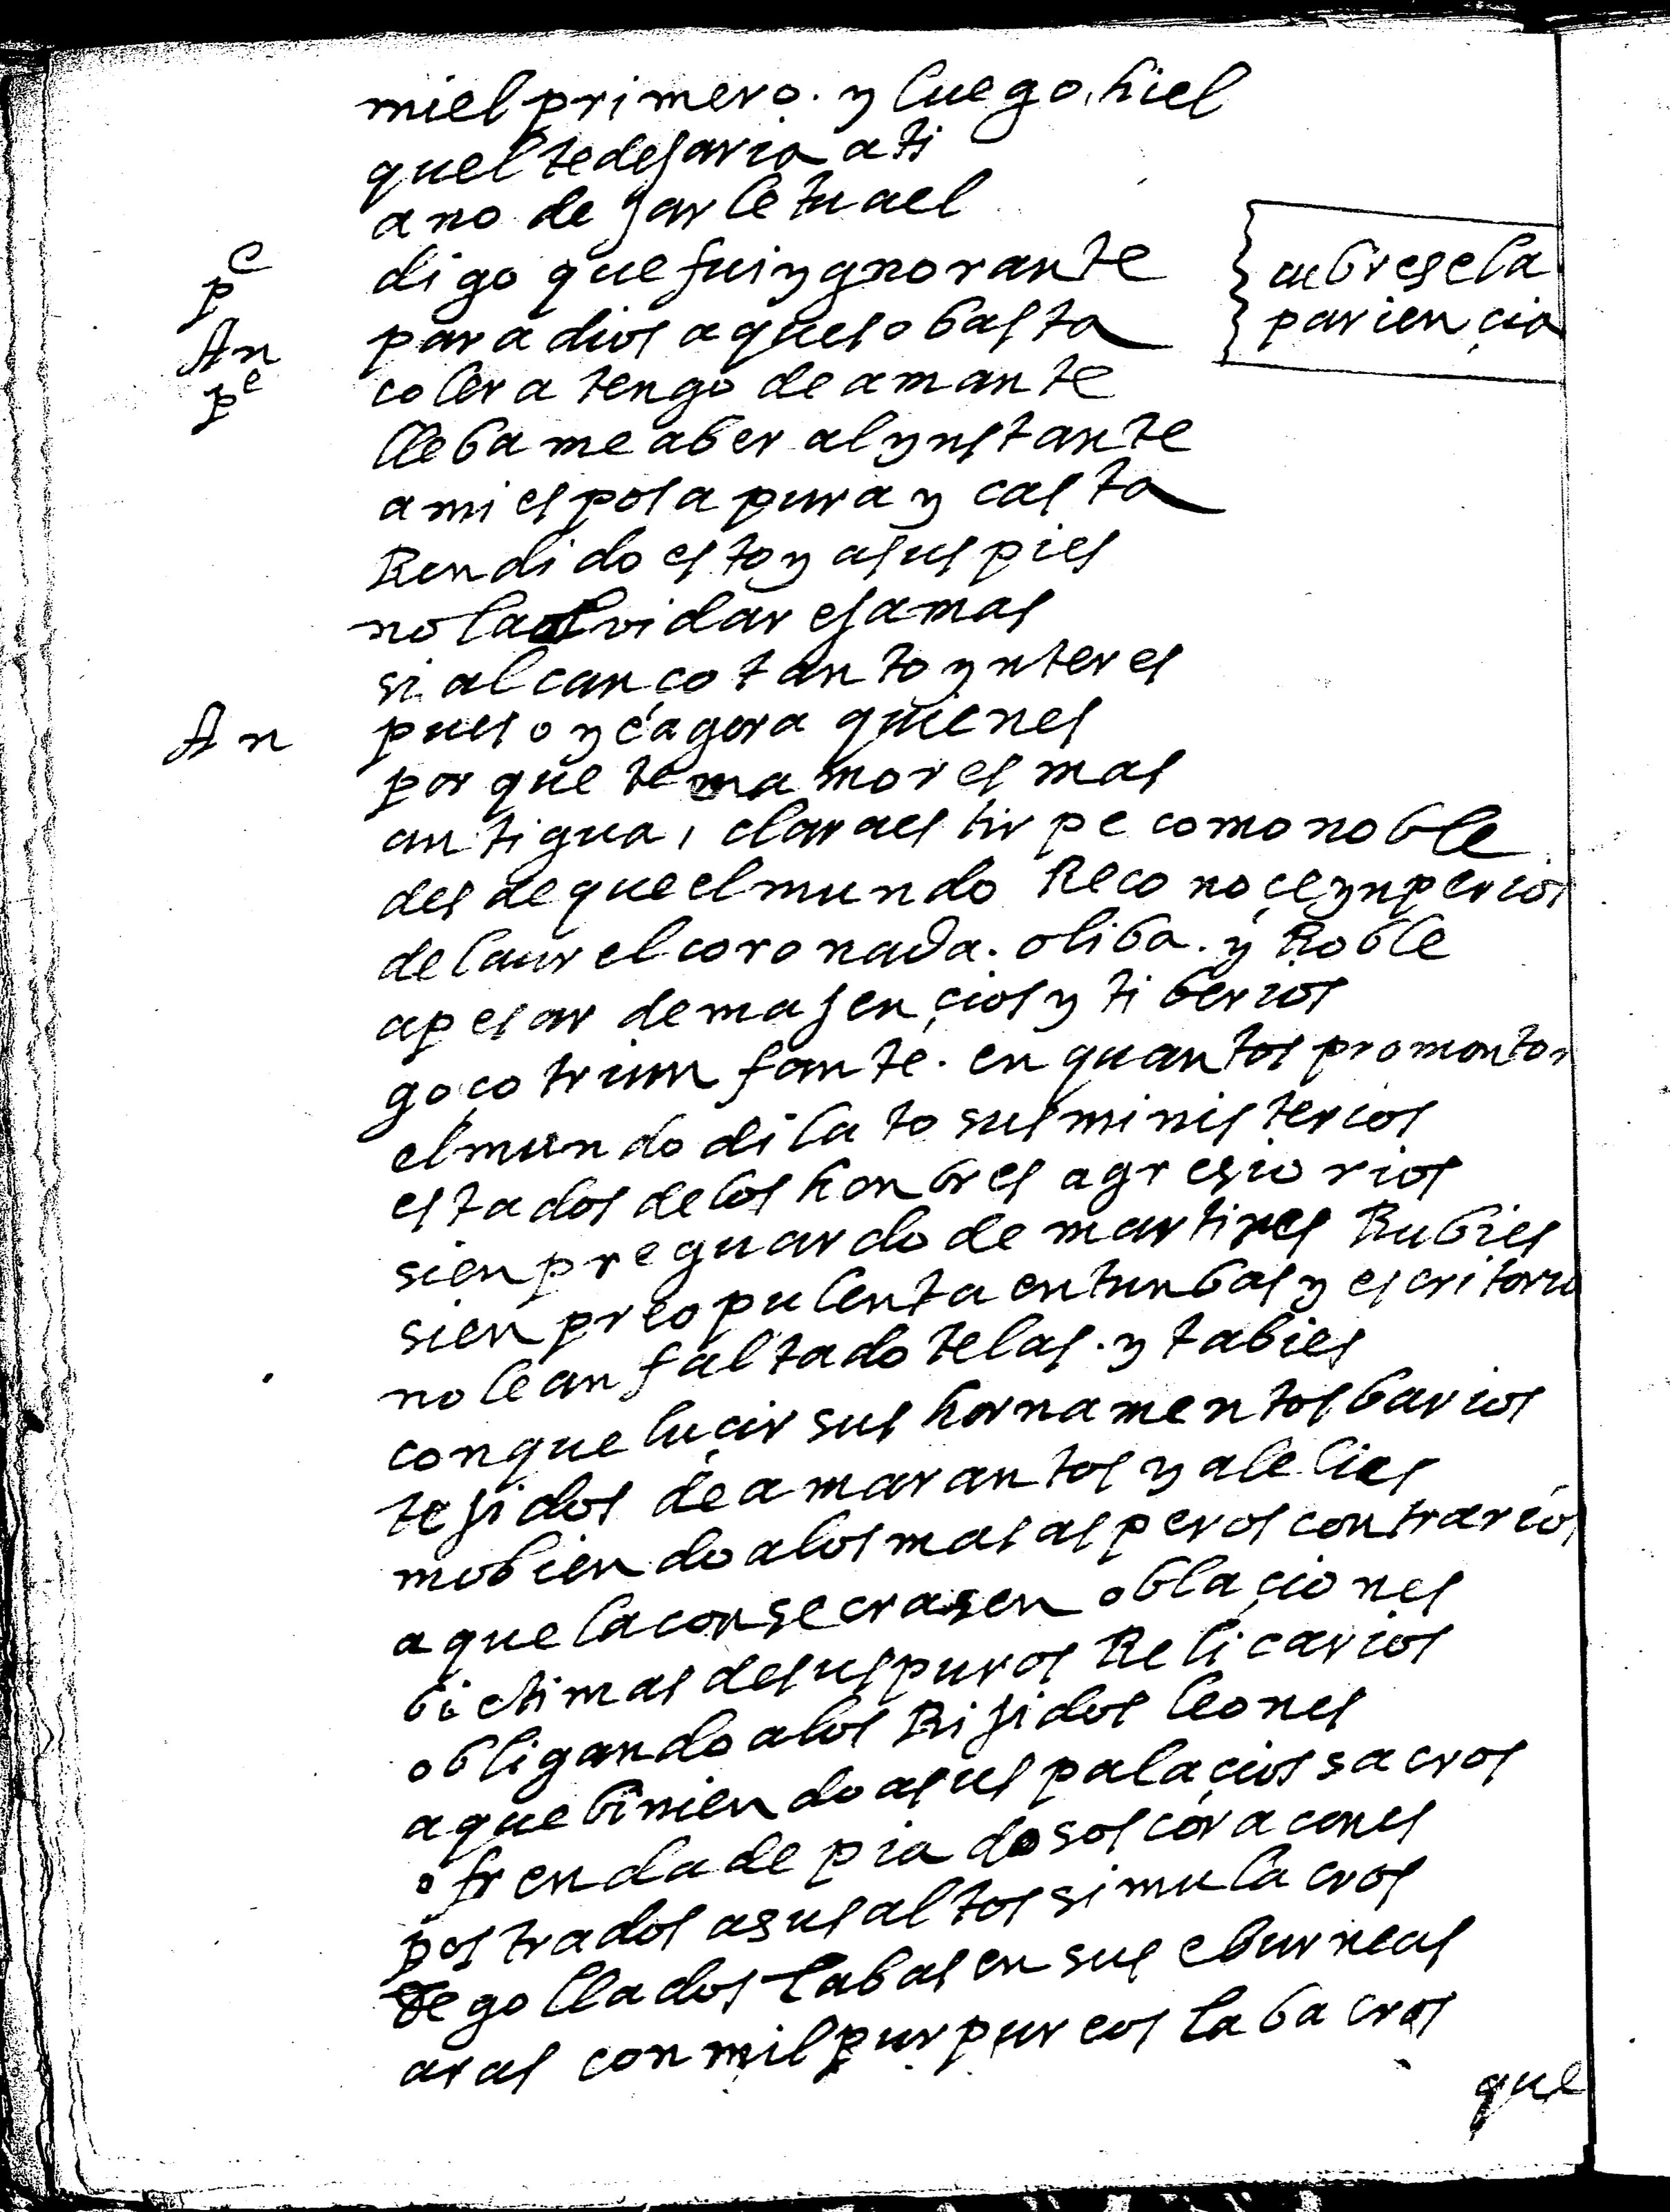 miel primero. y luego, hiel
quel te dejaria a ti
a no dejarle tu a el
pe digo que fui ygnorante
cubrese la
pariençia
An para dios aqueso basta
pe colera tengo de amante
llebame a ber al ynstante
a mi esposa pura y casta
Rendido estoy a sus pies
no la olvidare jamas
si alcanço tanto ynteres
An pues oye agora quien es
porque tema mores mas
antigua, clara estirpe como noble
desde que el mundo Reconoçe ynperios
de laurel coronada. oliba. y Roble
a pesar de majençios y tiberios
goço triumfante. en quantos promontor
el mundo dilato sus ministerios
estados de los honbres agresorios
sienpre guardo de martires Rubies
sienpre opulenta en tunbas y escritorio
no le an faltado telas. y tabies
con que luçir sus hornamentos barios
tejidos de amarantos y alelies
mobiendo a los mas asperos contrarios
a que la consecrasen oblaçiones
bictimas de sus puros Relicarios
obligando a los Rijidos leones
a que biniendo a sus palaçios sacros
ofrenda de piadosos coraçones
postrados a sus altos simulacros
degollados tabas en sus eburneas
aras con mil purpureos labacros
que